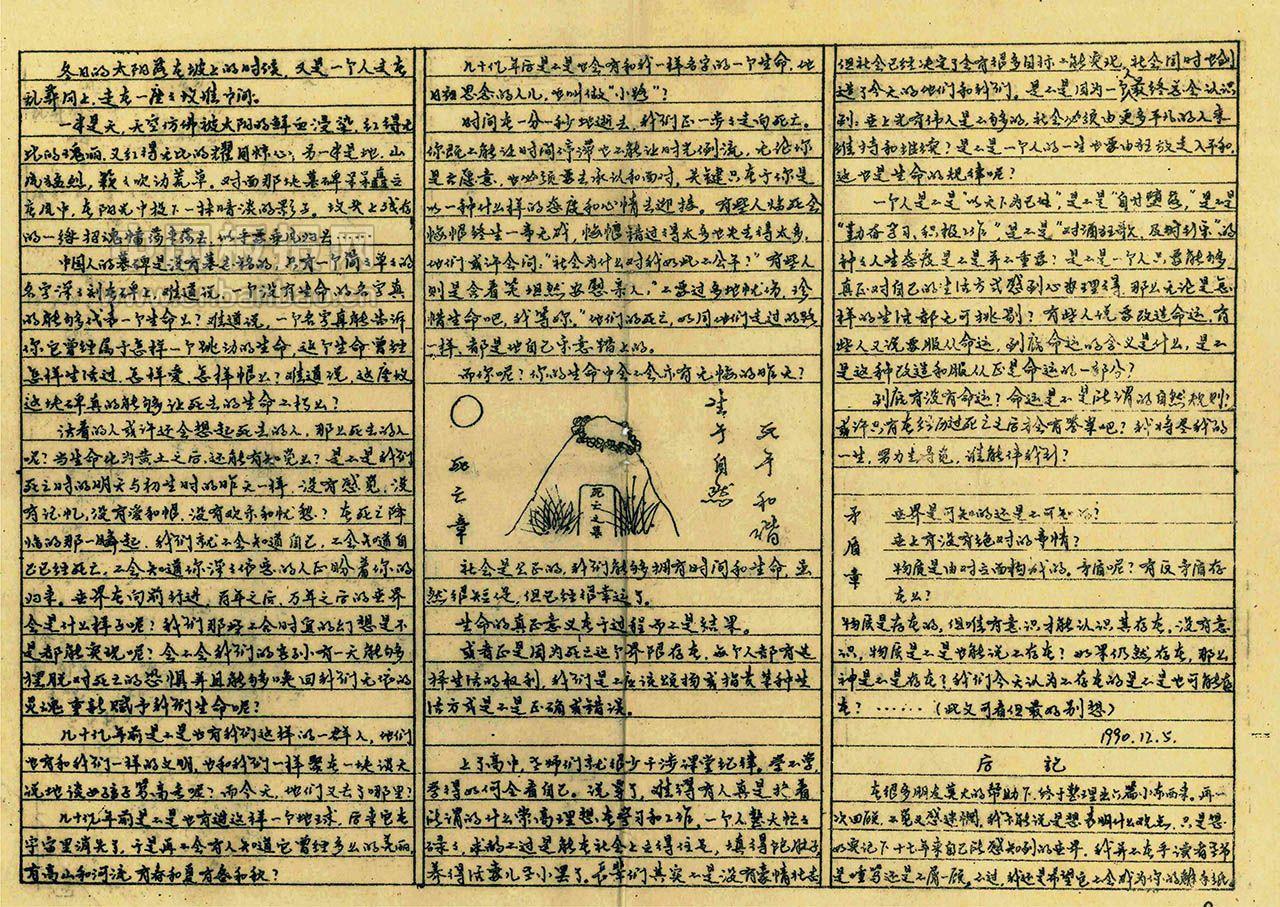 冬日的太阳落在坡上的时候，又是一个人走在
乱葬冈上，走在一座々坟堆中间。
一半是天，天空仿佛被太阳的鲜血浸染，红得无
比的瑰丽，又红得无比的耀目惊心；另一半是地，山
风猛烈，籁々吹动荒草。对面那块墓碑呆々矗立
在风中，在阳光中投下一抹暗淡的影子。坟头上残存
的一缕招魂幡荡来荡去，似乎要乘风归去
中国人的墓碑是没有墓志铭的，只有一个简々单々的
名字深々刻在碑上，难道说，一个没有生命的名字真
的能够代表一个生命么？难道说，一个名字真能告诉
你它曾经属于怎样一个跳动的生命，这个生命曾经
怎样生活过，怎样爱、怎样恨么？难道说，这座坟
这块碑真的能够让死去的生命不朽么？
活着的人或许还会想起死去的人，那么死去的人
呢？当生命化为黄土之后，还能有知觉么？是不是我们
死亡时的明天与初生时的昨天一样，没有感觉，没
有记忆，没有爱和恨，没有欢乐和忧愁？在死亡降
临的那一瞬起，我们就不会知道自己，不会知道自
己已经死亡，不会知道你深々眷恋的人正盼着你的
归来。世界在向前行进，百年之后，万年之后的世界
会是什么样子呢？我们那些不合时宜的幻想是不
是都能实现呢？会不会我们的子孙有一天能够
摆脱对死亡的恐惧并且能够唤回我们无依的
灵魂重新赋予我们生命呢？
几十亿年前是不是也有我们这样的一群人，他们
也有和我们一样的文明，也和我们一样聚在一块谈天
说地谈女孩子骂高老呢？而今天，他们又去了哪里？
几十亿年前是不是也有过这样一个地球，后来它在
宇宙里消失了，于是再不会有人知道它曾经多么的美丽，
有高山和河流，有春和夏有春和秋？
几十亿年后是不是也会有和我一样名字的一个生命，他
日夜思念的人儿，也叫做“小路”？
时间在一分一秒地逝去，我们正一步々走向死亡。
你既不能让时间停滞也不能让时光倒流，无论你
是否愿意，也必须要去承认和面对，关键只在于你是
以一种什么样的态度和心情去迎接。有些人临死会
悔恨终生一事无成，悔恨错过得太多也失去得太多，
他们或许会问：“社会为什么对我如此不公平？”有些人
则是含着笑坦然安慰亲人，“不要过多地忧伤，珍
惜生命吧，我等你。”他们的死亡，如同他们走过的路
一样，都是他自己乐意踏上的。
而你呢？你的生命中会不会亦有无悔的昨天？
死亡章
死亡之墓
生于自然
死于和谐
社会是公正的，我们能够拥有时间和生命，虽
然很短促，但已经很幸运了。
生命的真正意义在于过程而不是结果。
或者正是因为死亡这个界限存在，每个人都有选
择生活的权利，我们是不应该颂扬或指责某种生
活方式是不是正确或错误。
上了高中，老师们就很少干涉课堂纪律。学不学，
学得如何全看自己。说穿了，难得有人真是抱着
所谓的什么崇高理想在学习和工作，一个人整天忙忙
碌々，求的不过是能在社会上立得住足，填得饱肚子
养得活妻儿老小罢了。同学们其实不是没有豪情壮志
但社会已经决定了会有很多目标不能实现，社会同时也创
造了今天的他们和我们。是不是因为一个人最终总会认识
到：世上光有伟人是不多的，社会必须由更多平凡的人来
维持和继续？是不是一个人的一生也要由狂放走入平和，
这也是生命的规律呢？
一个人是不是“以天下为己任”，是不是“自甘堕落”，是不是
“勤奋学习，积极工作”，是不是“对酒狂歌，及时行乐”的
种々人生态度是不是并不重要？是不是一个人只要能够
真正对自己的生活方式感到心安理得，那么无论是怎
样的生活都无可挑剔？有些人说要改造命运，有
些人又说要服从命运，到底命运的含义是什么，是不
是这种改造和服从正是命运的一部分？
到底有没有命运？命运是不是所谓的自然规则？
或许只有在经历过死亡之后才会有答案吧？我将尽我的
一生，努力去寻觅，谁能伴我行？
矛盾章
世界是可知的还是不可知的？
世上有没有绝对的事情？
物质是由对立面构成的。矛盾呢？有反矛盾存
在么？
物质是存在的，但唯有意识才能认识其存在，没有意
识，物质是不是也能说不存在？如果仍然存在，那么
神是不是存在？我们今天认为不存在的是不是也可能存
在？……（此文可看但最好别想）
1990.12.5.
后记
在很多朋友莫大的帮助下，终于整理出六篇小东西来，再一
次回顾，不觉又感迷惘，我不能说是想表明什么观点，只是想
如实记下十七年来自己所感知到的世界，我并不在乎读者至爷
是唾骂还是不屑一顾。不过，我还是希望它不会成为你的解手纸。